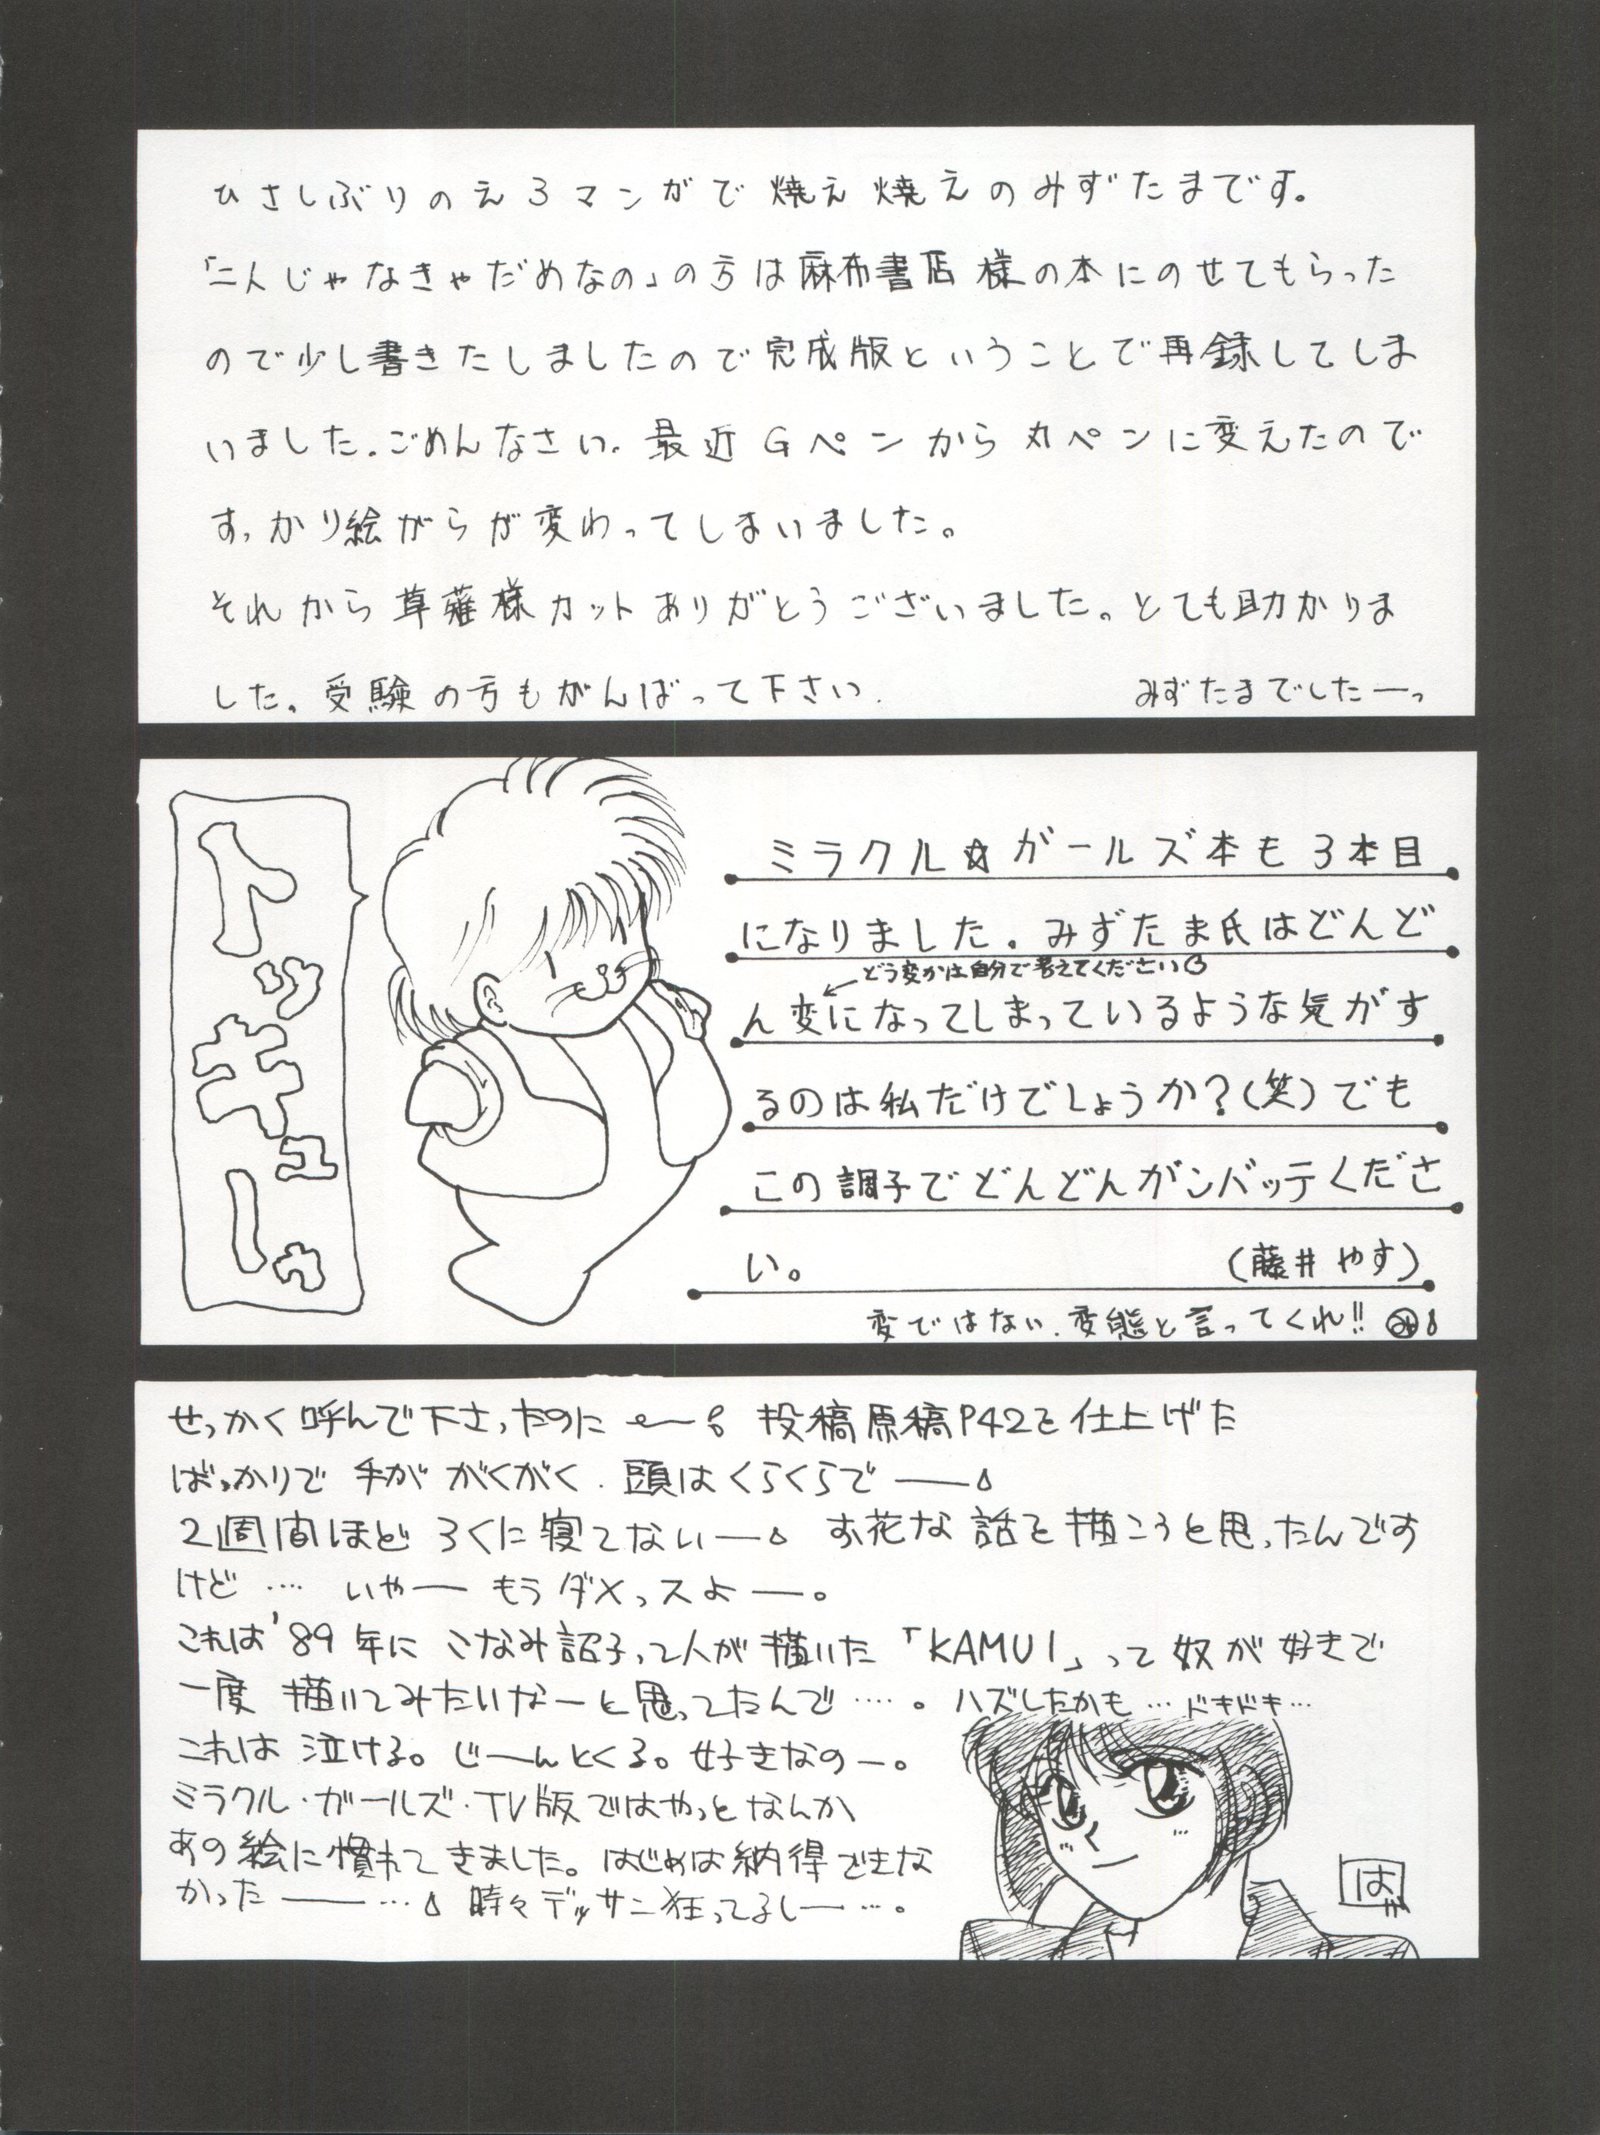 ひさしぶりのえろマンガで燃え燃えのみずたまです。
「二人じゃなきゃだめなの」の方は麻布書店様の本にのせてもらった
ので少し書きたしましたので完成版ということで再録してしま
いました.ごめんなさい.最近Gペンから丸ペンに変えたので
すっかり絵がらが変わってしまいました。
それから草薙様カットありがとうございました。とても助かりま
した。受験の方もがんばって下さい.
みずたまでしたーっ
トッキューゥ
ミラクル☆ガールズ本も3本目
になりました。みずたま氏はどんど
どう変かは自分で考えてください
ん変になってしまっているような気がす
るのは私だけでしょうか?(笑)でも
この調子でどんどんガンバッテくださ
い。
(藤井やす)
変ではない.変態と言ってくれ!!
せっかく呼んで下さったのに 投稿原稿P42を仕上げた
ばっかりで 手が がくがく.頭はくらくらで――
2週間ほど ろくに寝てない― お花な話を描こうと思ったんです
けど‥‥ いやー もうダメっスよー。
これは'89年に こなみ詔子って人が描いた「KAMUI」って奴が好きで
一度 描いてみたいなーと思ってたんで‥‥。ハズしたかも…ドキドキ…
これは 泣ける。じーんとくる。好きなのー。
ミラクル・ガールズ・TV版ではやっとなんか
あの絵に慣れてきました。はじめは納得できな
かった――… 時々デッサン狂ってるしー…。
は